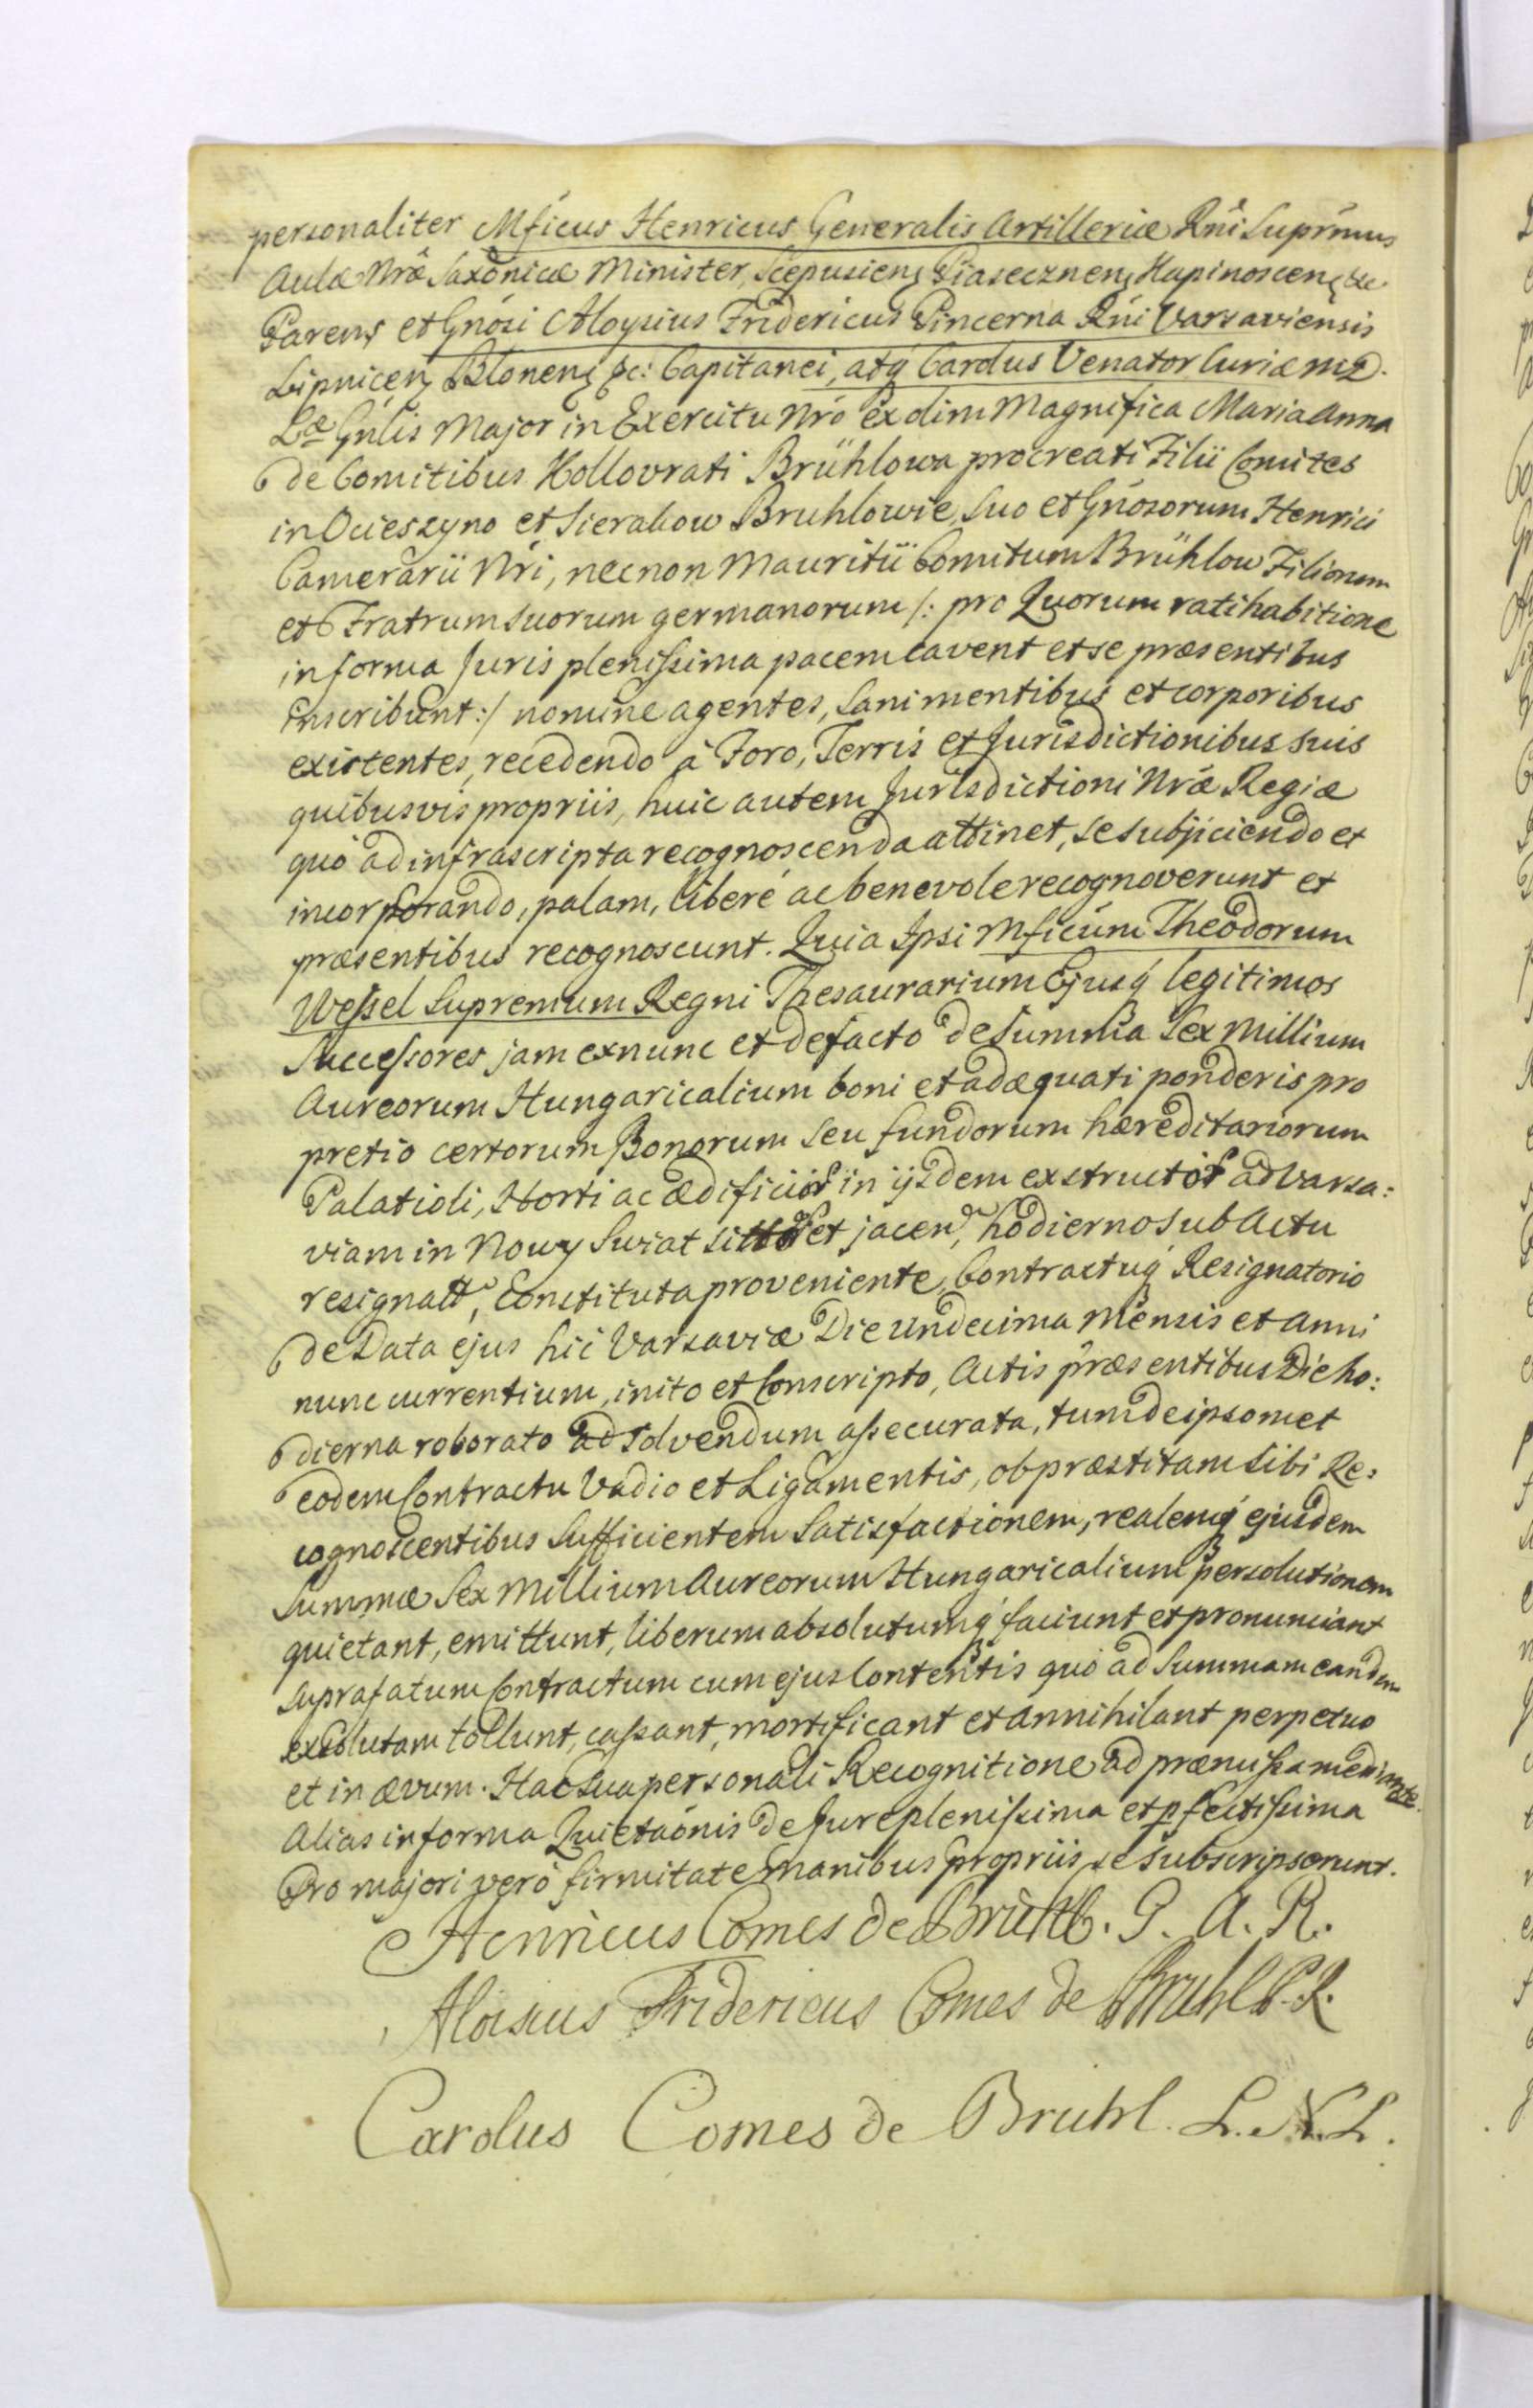 personaliter Mficus Henricus Generalis Artilleriæ Rńi Suprēmus
Aulæ Nrǽ Saxonicæ Minister, Scepusienς Piasecznenς Kapinoscenς &c
Parens et Gńosi Aloysius Fridericus Pincerna Rńi Varsaviensis
Lipnicenς Blonenς &c: Capitanei, atq́ Carolus Venator Curiæ M.D.
Læ Gńlis Major in Exercitu Nró ex olim Magnifica Maria Anna
de Comitibus Kollovrati Brühlowa procreati Filii Comites
in Ocieszyno et Sierakow Bruhlowie, suo et Gńosorum Henrici
Camerarii Nŕi, necnon Mauritii Comitum Brühlow Filiorum
et Fratrum suorum germanorum /: pro Quorum ratihabitione
in forma Juris plenissima pacem cavent et se præsentibus
inscribunt :/ nomine agentes, sani mentibus et corporibus
existentes, recedendo à Foro, Terris et Jurisdictionibus suis
quibusvis propriis, huic autem Jurisdictioni Nrǽ Regiæ
quò ad infrascripta recognoscenda attinet, se subjiciendo et
incorporando, palam, liberé ac benevole recognoverunt et
præsentibus recognoscunt. Quia Ipsi Mficúm Theodorum
Wessel Supremum Regni Thesaurarium Ejusq́ legitimos
Successores jam exnunc et defacto de Summa Sex Millium
Aureorum Hungaricalium boni et adæquati ponderis pro
pretio certorum Bonorum seu fundorum hæreditariorum
Palatioli, Horti ac ædificior in ijsdem exstructor ad Varsa:
viam in Nowy Swiat sittor et jacen, hodierno sub Actu
resignatt, Constituta proveniente, Contractuq́ Resignatorio
de Data ejus hic Varsaviæ Die Undecima Mensis et Anni
nunc currentium, inito et Conscripto, Actis præsentibus Die ho:
dierna roborato ad solvendum assecurata, tum de ipsomet
eodem Contractu Vadio et Ligamentis, ob præstitam sibi Re:
cognoscentibus Sufficientem Satisfactionem, realemq́ ejusdem
Summæ Sex Millium Aureorum Hungaricalium persolutionem
quietant, emittunt, liberum absolutumq́ faciunt et pronunciant
suprafatum Contractum cum ejus Contentis quò ad Summam eandem
exsolutam tollunt, cassant, mortificant et annihilant perpetuo
et in ævum. Hac sua personali Recognitione ad præmissa mediante.
Alias in forma Quietaónis de Jure plenissima et pfectissima
Pro majori verò firmitate manibus propriis se subscripserunt.
Henricus Comes de Brühl. G. A. R.
Aloisius Fridericus Comes de Bruhl P.R.
Carolus Comes de Bruhl. L. N. L.